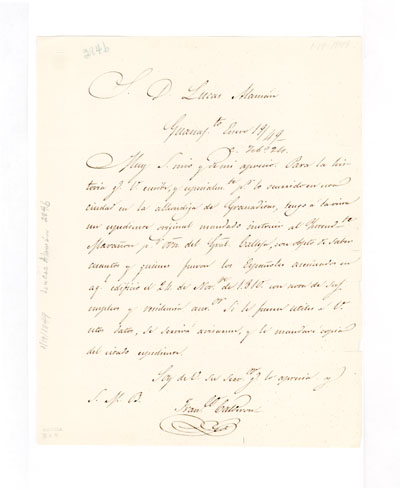 2846
S. D. Lucas Alamán
Guanaj.to Enero 19/49
Feb.o 24.
Muy S. mio y de mi aprecio. Para la his-
toria q.e V. escribe, y especialm.te p.r lo ocurrido en esta
ciudad en la alhondiga de Granaditas, tengo a la vista
un espediente original mandado instruir al
Marañon p.r orn del Gral. Calleja, con objeto de saber
cuantos y quienes fueron los Españoles asesinados en
aq.l edificio el 24 de Nov.e de 1810. con nota de sus
empleos y residencia Si le fueren utiles a V.
estos datos, se servirá avisarme, y le mandaré copia
del citado espediente.
Soy de V. su serv.or q.e lo aprecia y
S. M. B.
Fran.co Calderon
Lucas Alamán 2846
1/19/1849